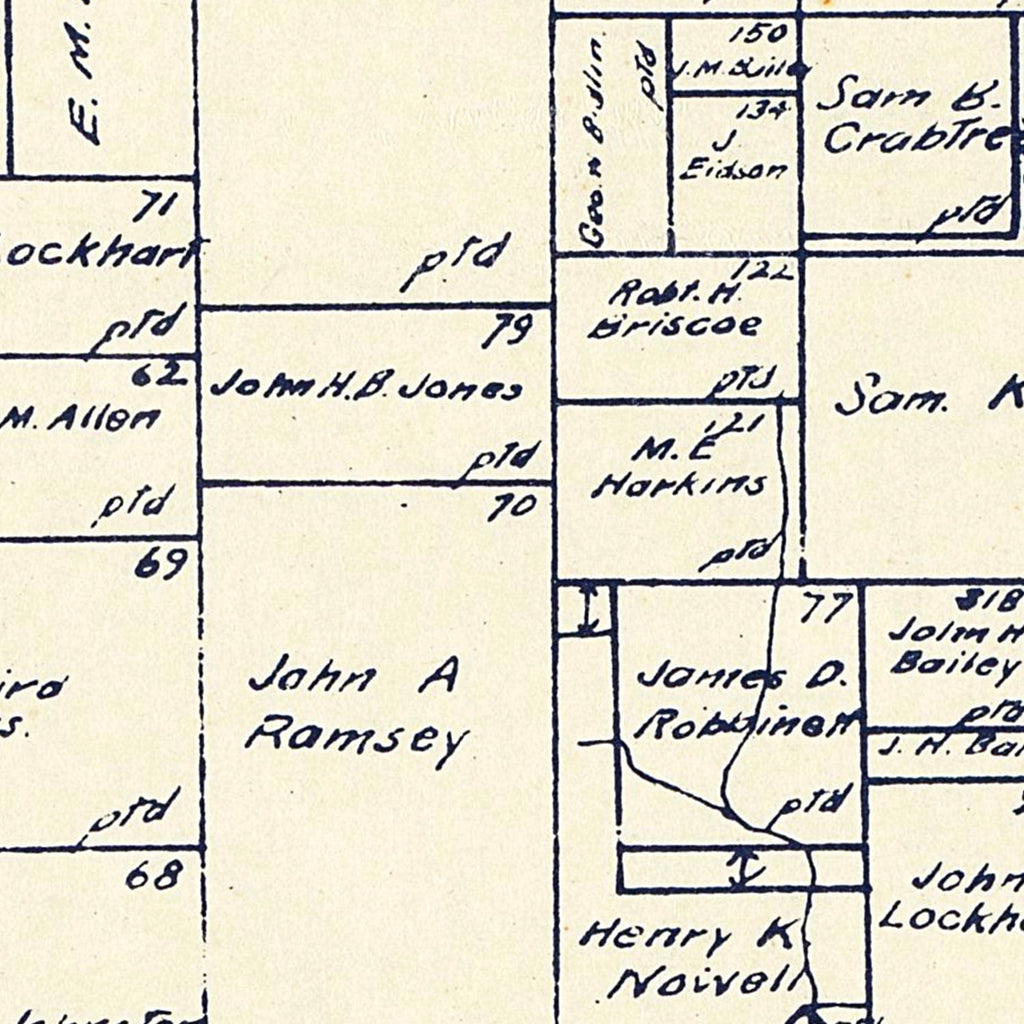 E. M.
71
ockhart
ptd
62
M. Allen
ptd
69
ptd
68
ptd
79
John H.B. Jones
ptd
70
John A
Ramsey
ptd
150
134
J
Eidson
Sam B.
CrabTre
ptd
122
Robt. H.
Briscoe
ptd
121
M. E
Harkins
ptd
Sam. K
77
James D.
Robbinett
ptd
318
John H
Bailey
ptd
J. H. Bai
John
Lockh
Henry K
Noivell